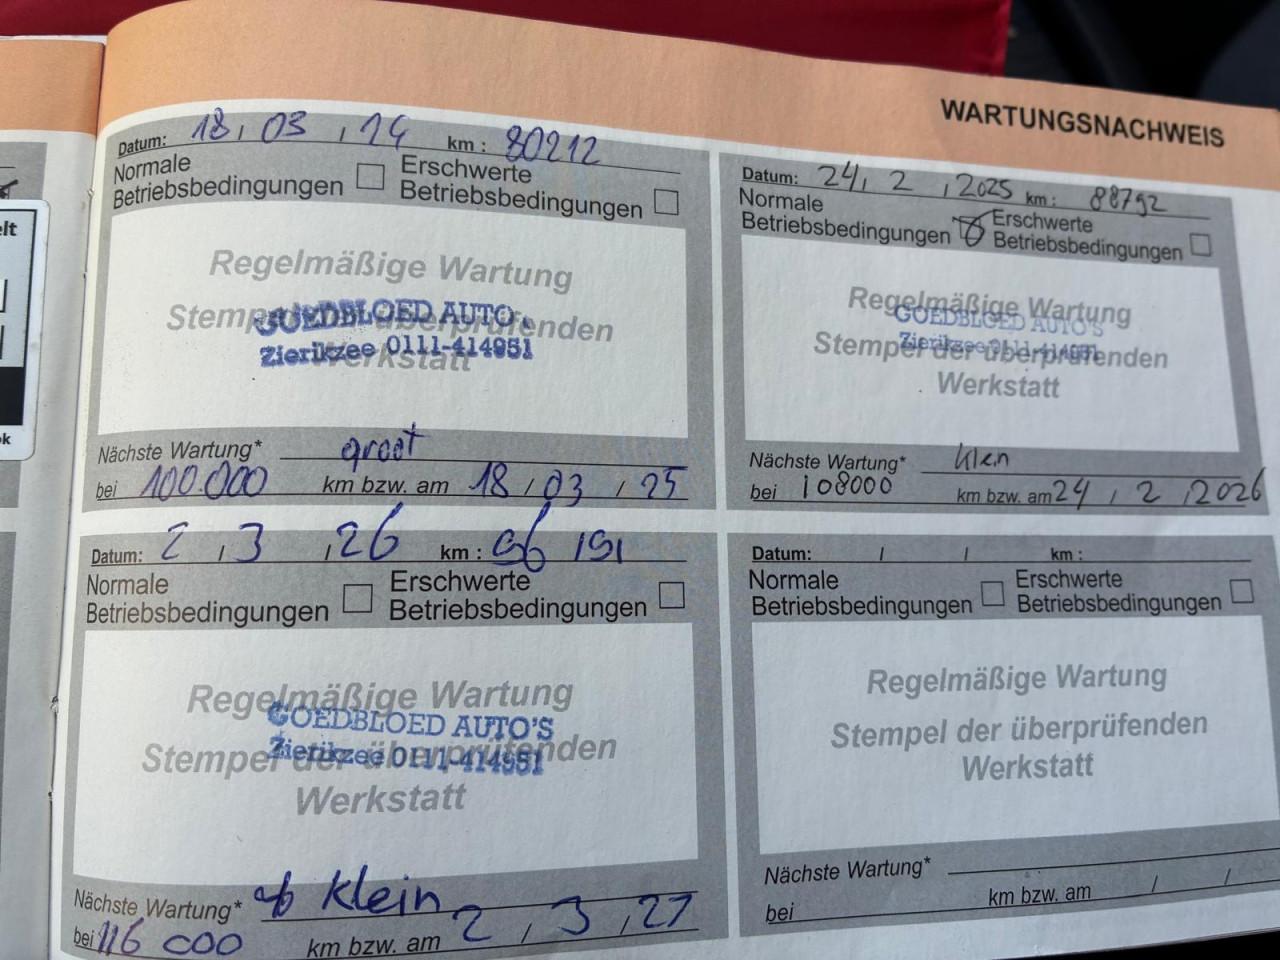 WARTUNGSNACHWEIS
Datum: 18 / 03 / 24 km : 80212
Normale
Betriebsbedingungen
Erschwerte
Betriebsbedingungen
Regelmäßige Wartung
Stempel der überprüfenden
Werkstatt
GOEDBLOED AUTO'S
Zierikzee 0111-414951
Nächste Wartung* groot
bei 100.000 km bzw. am 18 / 03 / 25
Datum: 24 / 2 / 2025 km : 88792
Normale
Betriebsbedingungen
Erschwerte
Betriebsbedingungen
Regelmäßige Wartung
Stempel der überprüfenden
Werkstatt
GOEDBLOED AUTO'S
Zierikzee 0111-414951
Nächste Wartung* klein
bei 108000 km bzw. am 24 / 2 / 2026
Datum: 2 / 3 / 26 km : 96 191
Normale
Betriebsbedingungen
Erschwerte
Betriebsbedingungen
Regelmäßige Wartung
Stempel der überprüfenden
Werkstatt
GOEDBLOED AUTO'S
Zierikzee 0111-414951
Nächste Wartung* klein
bei 116 000 km bzw. am 2 / 3 / 27
Datum: / / km :
Normale
Betriebsbedingungen
Erschwerte
Betriebsbedingungen
Regelmäßige Wartung
Stempel der überprüfenden
Werkstatt
Nächste Wartung*
bei km bzw. am / /